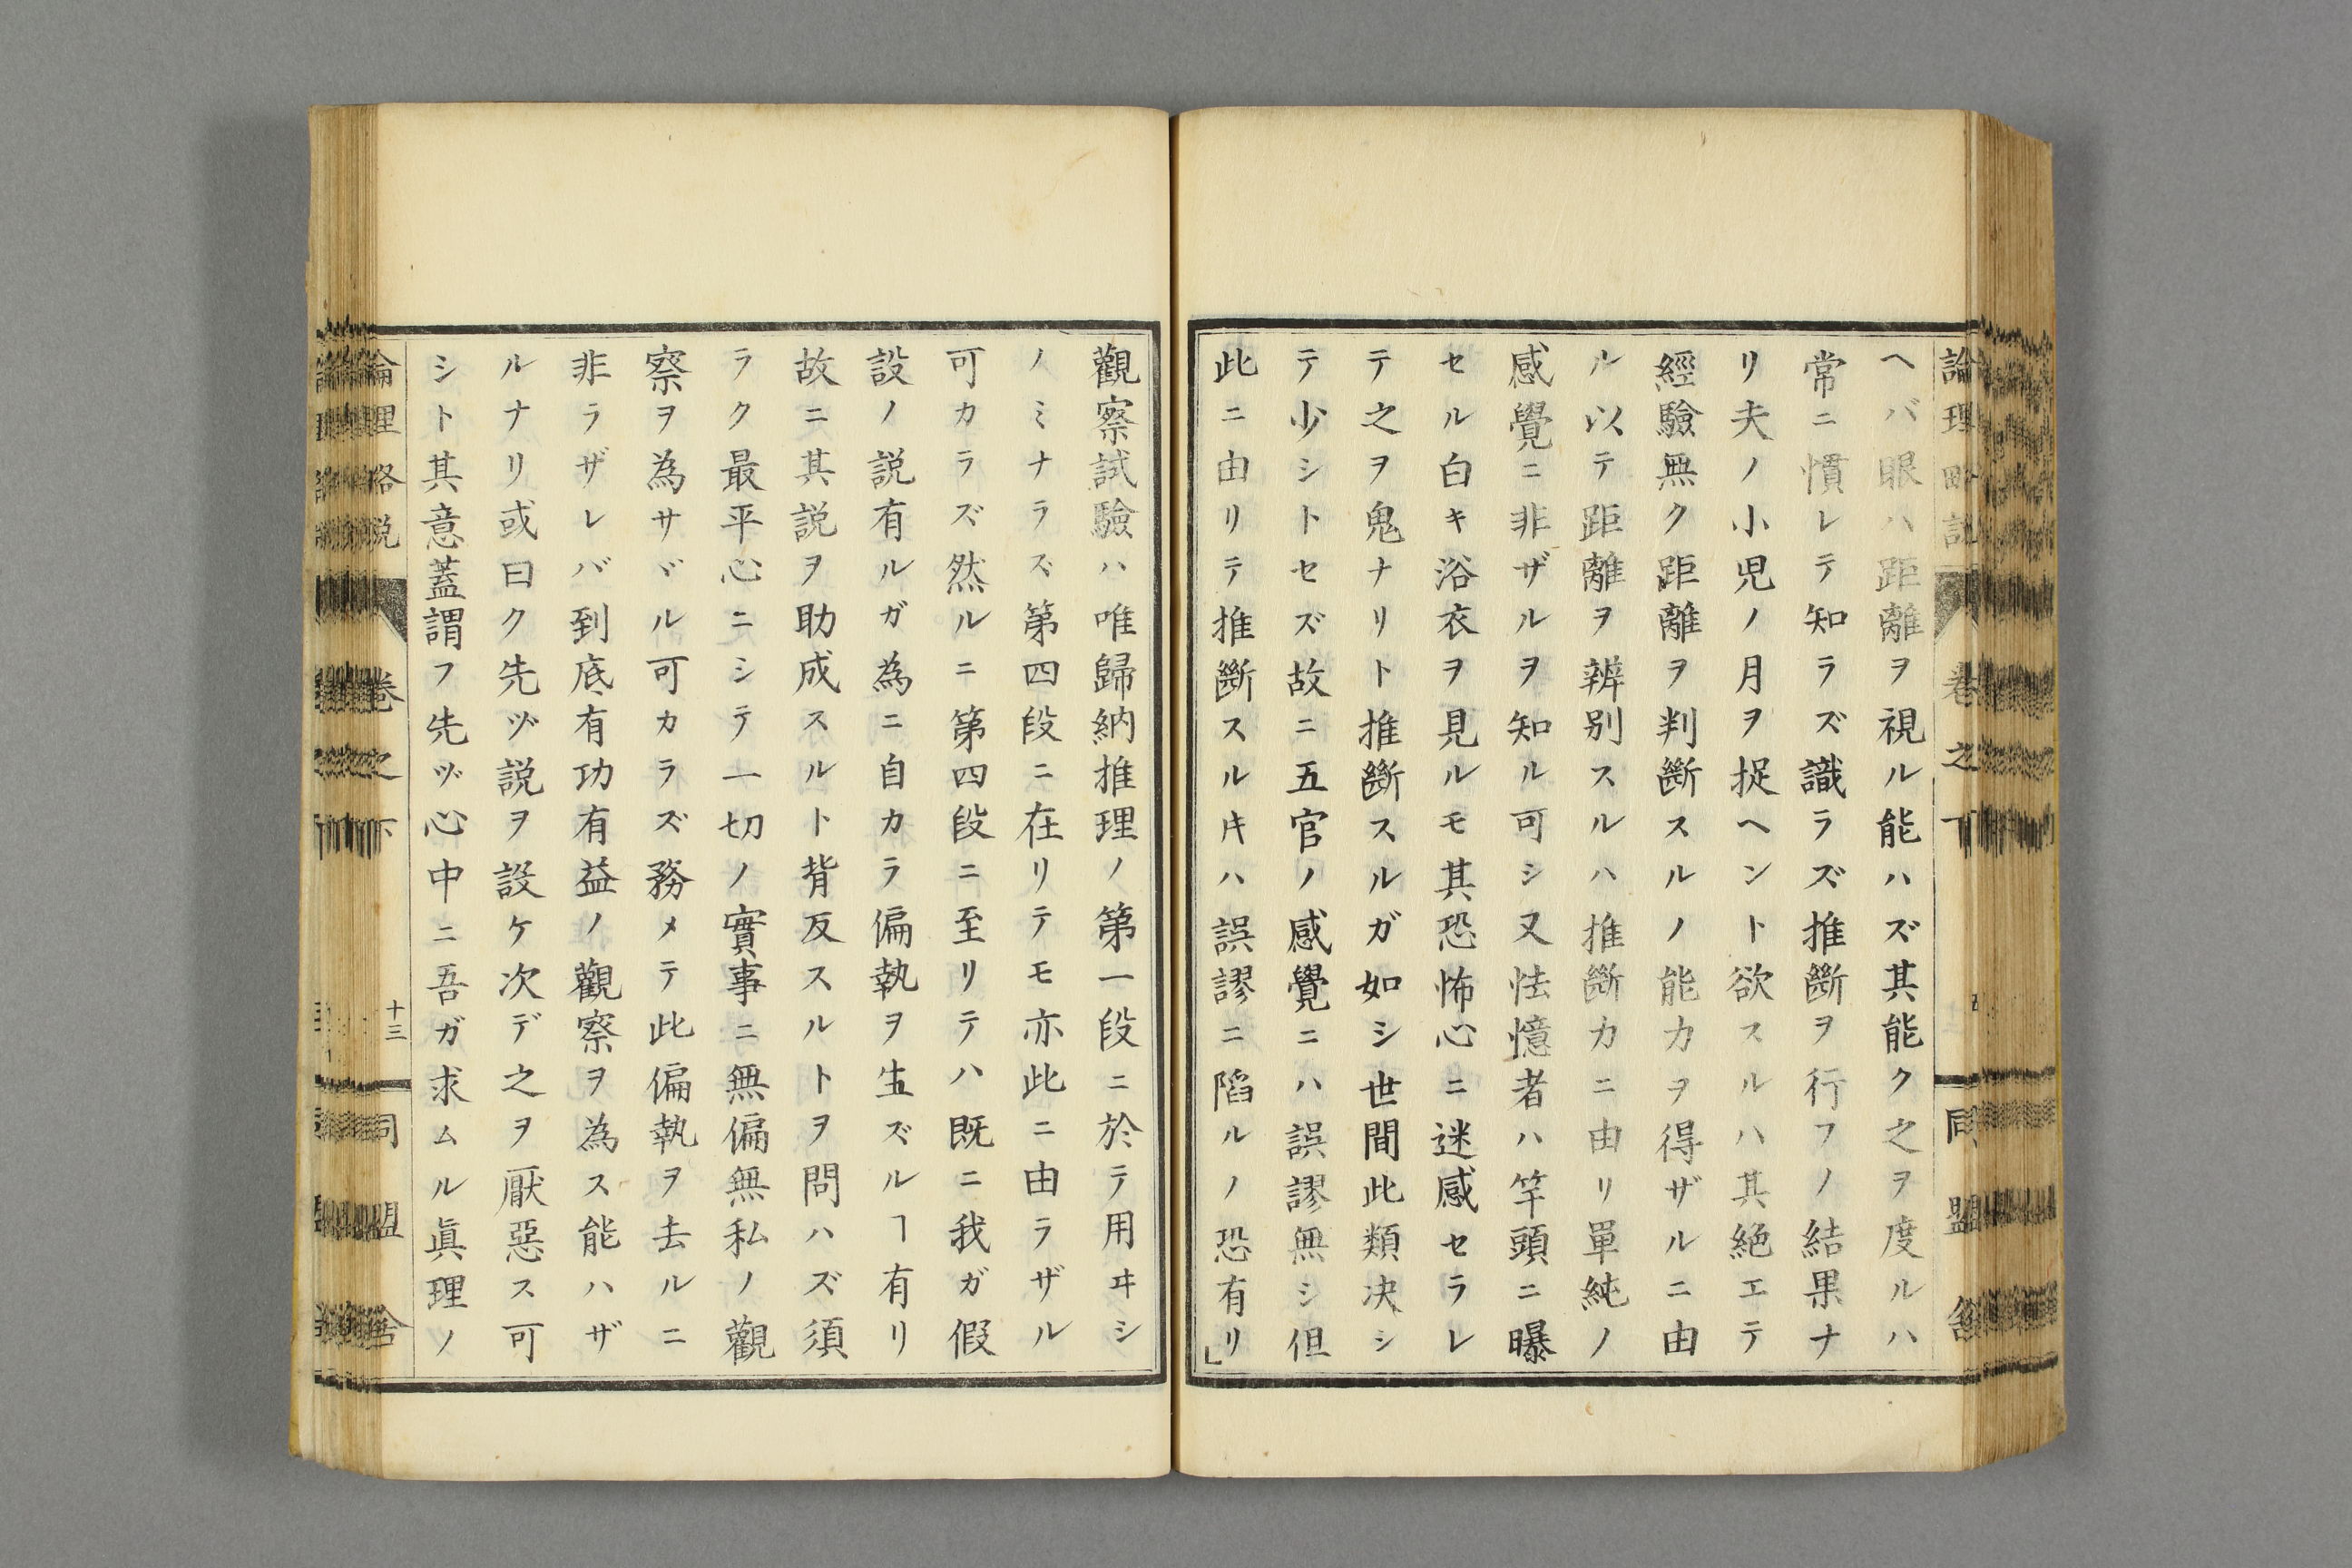 ヘバ眼ハ距離ヲ視ル能ハズ其能ク之ヲ度ルハ
常ニ慣レテ知ラズ識ラズ推斷ヲ行フノ結果ナ
リ夫ノ小児ノ月ヲ捉ヘント欲スルハ其絶エテ
經驗無ク距離ヲ判斷スルノ能力ヲ得ザルニ由
ル以テ距離ヲ辨別スルハ推斷力ニ由リ單純ノ
感覺ニ非ザルヲ知ル可シ又怯憶者ハ竿頭ニ曝
セル白キ浴衣ヲ見ルモ其恐怖心ニ迷惑セラレ
テ之ヲ鬼ナリト推斷スルガ如シ世間此類决シ
テ少シトセズ故ニ五官ノ感覺ニハ誤謬無シ但
此ニ由リテ推斷スル𪜈ハ誤謬ニ陷ルノ恐有リ」
論理略説
巻之下
同盟舎
觀察試驗ハ唯歸納推理ノ第一段ニ於テ用ヰシ
ノミナラズ第四段ニ在リテモ亦此ニ由ラザル
可カラズ然ルニ第四段ニ至リテハ既ニ我ガ假
設ノ説有ルガ為ニ自カラ偏執ヲ生ズルヿ有リ
故ニ其説ヲ助成スルト背反スルトヲ問ハズ須
ラク最平心ニシテ一切ノ實事ニ無偏無私ノ觀
察ヲ為サヾル可カラズ務メテ此偏執ヲ去ルニ
非ラザレバ到底有功有益ノ觀察ヲ為ス能ハザ
ルナリ或曰ク先ヅ説ヲ設ケ次デ之ヲ厭惡ス可
シト其意蓋謂フ先ヅ心中ニ吾ガ求ムル眞理ノ
論理略説
巻之下
十三
同盟舎